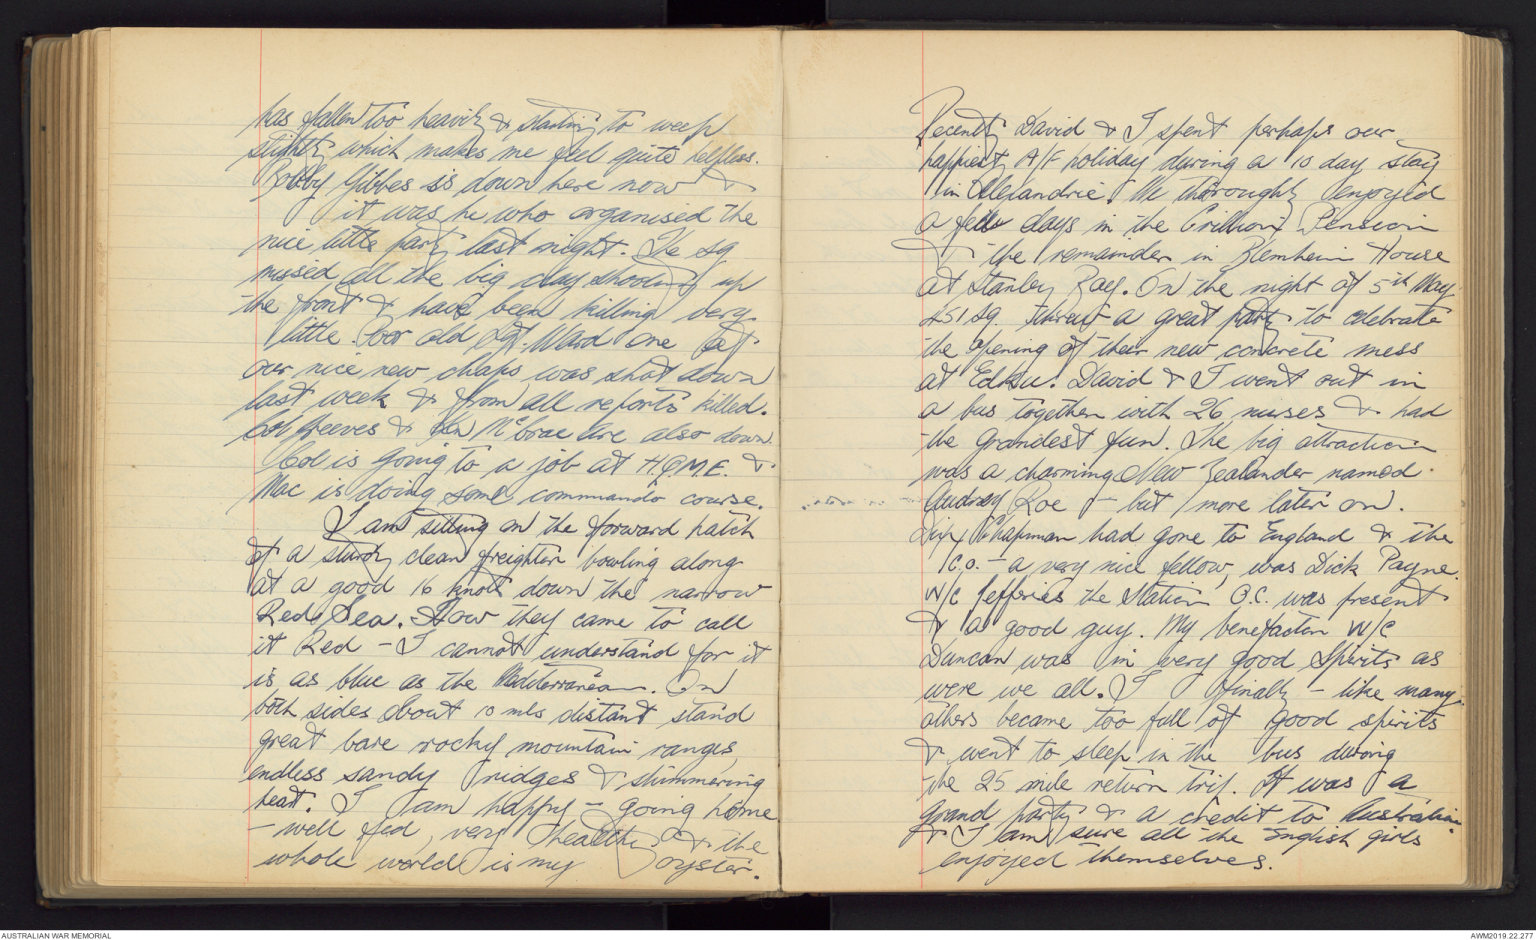 has fallen too heavily & starting to weep
slightly which makes me feel quite helpless.
Bobby Gibbes is down here now &
it was he who organised the
nice little party last night. The sq
missed all the big day shooting up
the front & have been killing very
little. Poor old Sgt. Ward one of
our nice new chaps was shot down
last week & from all reports killed.
Col Greeves & Ken McRae are also down
Col is going to a job at H.Q.M.E. &
Mac is doing some commando course.
I am sitting on the forward hatch
of a sturdy clean freighter bowling along
at a good 16 knots down the narrow
Red Sea. How they came to call
it Red - I cannot understand for it
is as blue as the Mediterranean. On
both sides about 10 mls distant stand
great bare rocky mountain ranges,
endless sandy ridges & shimmering
heat. I am happy - going home
- well fed, very healthy & the
whole world is my oyster.
Recently David & I spent perhaps our
happiest A/F holiday during a 10 day stay
in Alexandria. We thoroughly enjoyed
a few days in the Crillion Pension
& the remainder in Blenheim House
at Stanley Bay. On the night of 5th May
451 Sq. threw a great party to celebrate
the opening of their new concrete mess
at Edku. David & I went out in
a bus together with 26 nurses & had
the grandest fun. The big attraction
was a charming New Zealander named
Audrey Roe - but more later on.
Chapman had gone to England & the
C.O. - a very nice fellow, was Dick Payne.
W/C Jefferies the Station O.C. was present
& a good guy. My benefactor W/C
Duncan was in very good spirits as
were we all. I finally - like many
others became too full of good spirits
& went to sleep in the bus during
the 25 mile return trip. It was a
grand party & a credit to Australia
& I am sure all the English girls
enjoyed themselves.
AUSTRALIAN WAR MEMORIAL
AWM2019.22.277